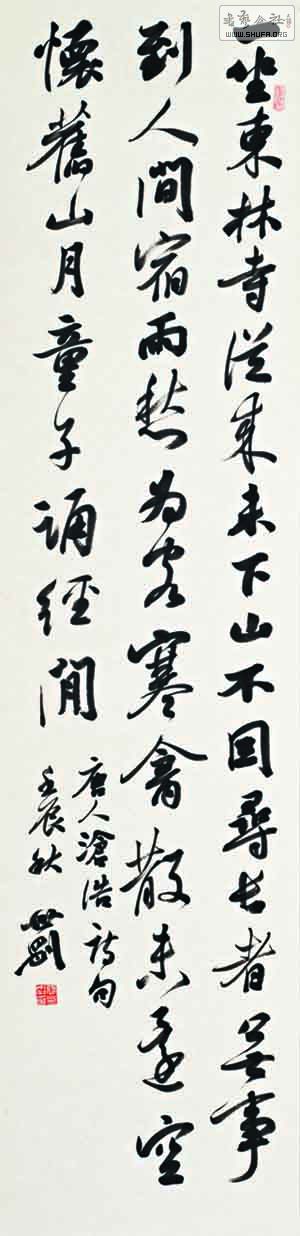 一坐東林寺從来未下山不因尋长者無事
到人間宿雨愁为客寒禽散未還空
懷舊山月童子誦經閒
唐人滄浩詩句
壬辰秋 世剛
书艺公社
WWW.SHUFA.ORG